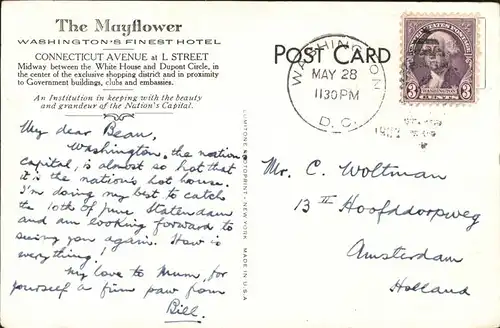 The Mayflower
WASHINGTON'S FINEST HOTEL
CONNECTICUT AVENUE at L STREET
Midway between the White House and Dupont Circle, in
the center of the exclusive shopping district and in proximity
to Government buildings, clubs and embassies.
An Institution in keeping with the beauty
and grandeur of the Nation's Capital.
My dear Beau,
Washington, the nation's
capital, is almost so hot that
it is the nation's hot house.
I'm doing my best to catch
the 10th of June Statendam
and am looking forward to
seeing you again. How is
everything!
My love to Mum, for
yourself a firm paw from
Bill.
LUMITONE PHOTOPRINT - NEW YORK MADE IN U.S.A
POST CARD
WASHINGTON
MAY 28
1130 PM
D. C.
UNITED STATES POSTAGE
WASHINGTON
3 CENTS 3
Mr. C. Woltman
13 II Hoofddorpweg
Amsterdam
Holland